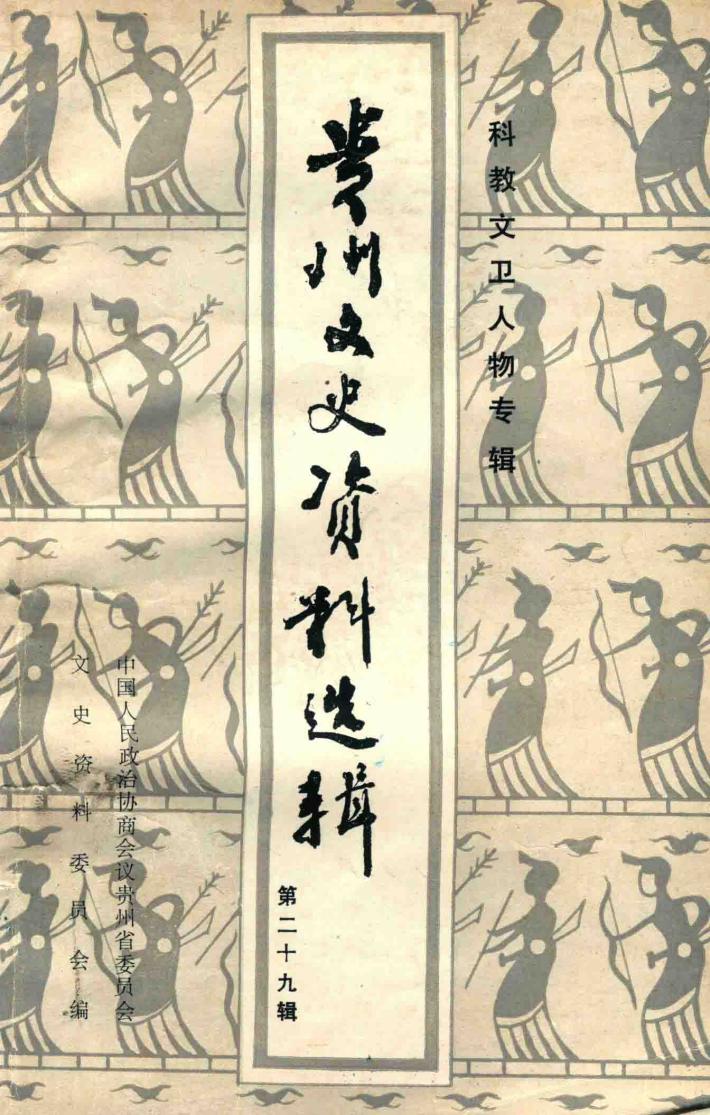 科教文卫人物专辑
贵州文史资料选辑
第二十九辑
中国人民政治协商会议贵州省委员会
文史资料委员会编